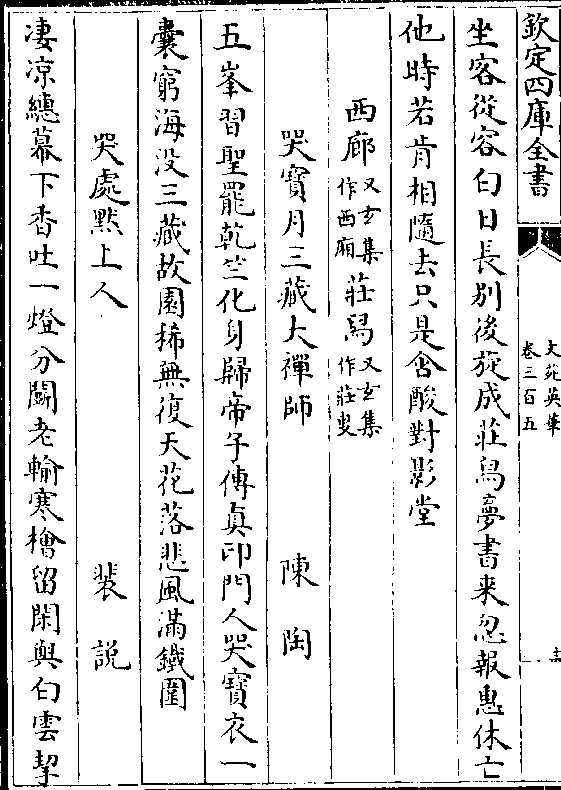 欽定四庫全書
文苑英華
卷三百五
坐客從容白日長別後旋成莊舄夢書来忽報惠休亡
他時若肯相隨去只是含酸對影堂
西廊又玄集作西廂莊舄又玄集作莊叟
哭寶月三藏大禪師 陳陶
五峯習聖罷乾竺化身歸帝子傳真印門人哭寶衣一
囊窮海没三藏故園稀無復天花落悲風滿鐵圍
哭處黙上人 裴説
凄凉繐幕下香吐一燈分鬬老輸寒檜留閑與白雲挈